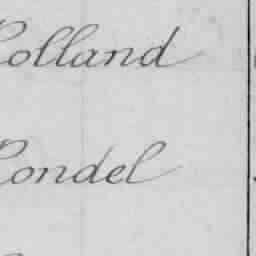 Colland
Condel